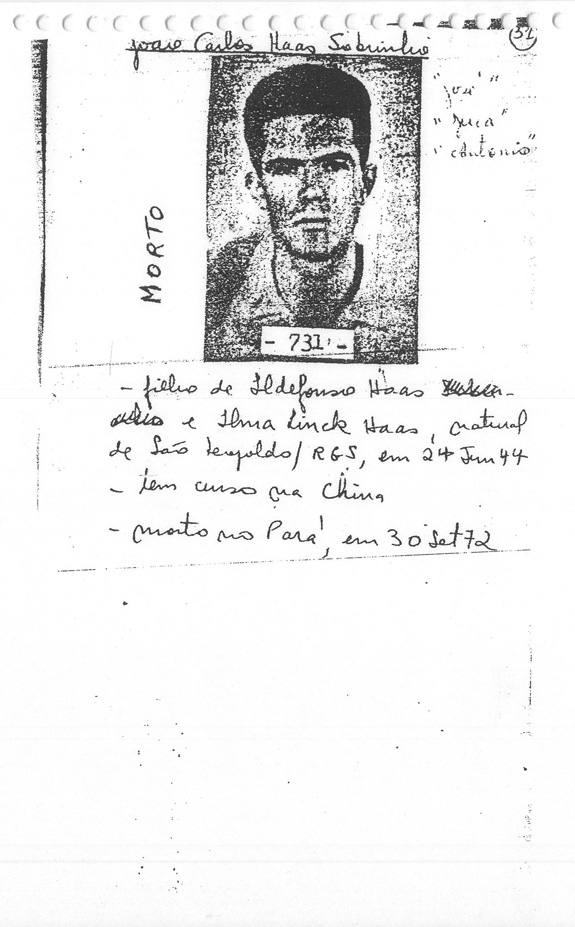 51
João Carlos Haas Sobrinho
"José"
"Juca"
"Antônio"
MORTO
- 731 -
- filho de Ildefonso Haas
e Ilma Linck Haas, natural
de São Leopoldo/RGS, em 24 Jun 44
- tem curso na China
- morto no Pará, em 30 Set 72